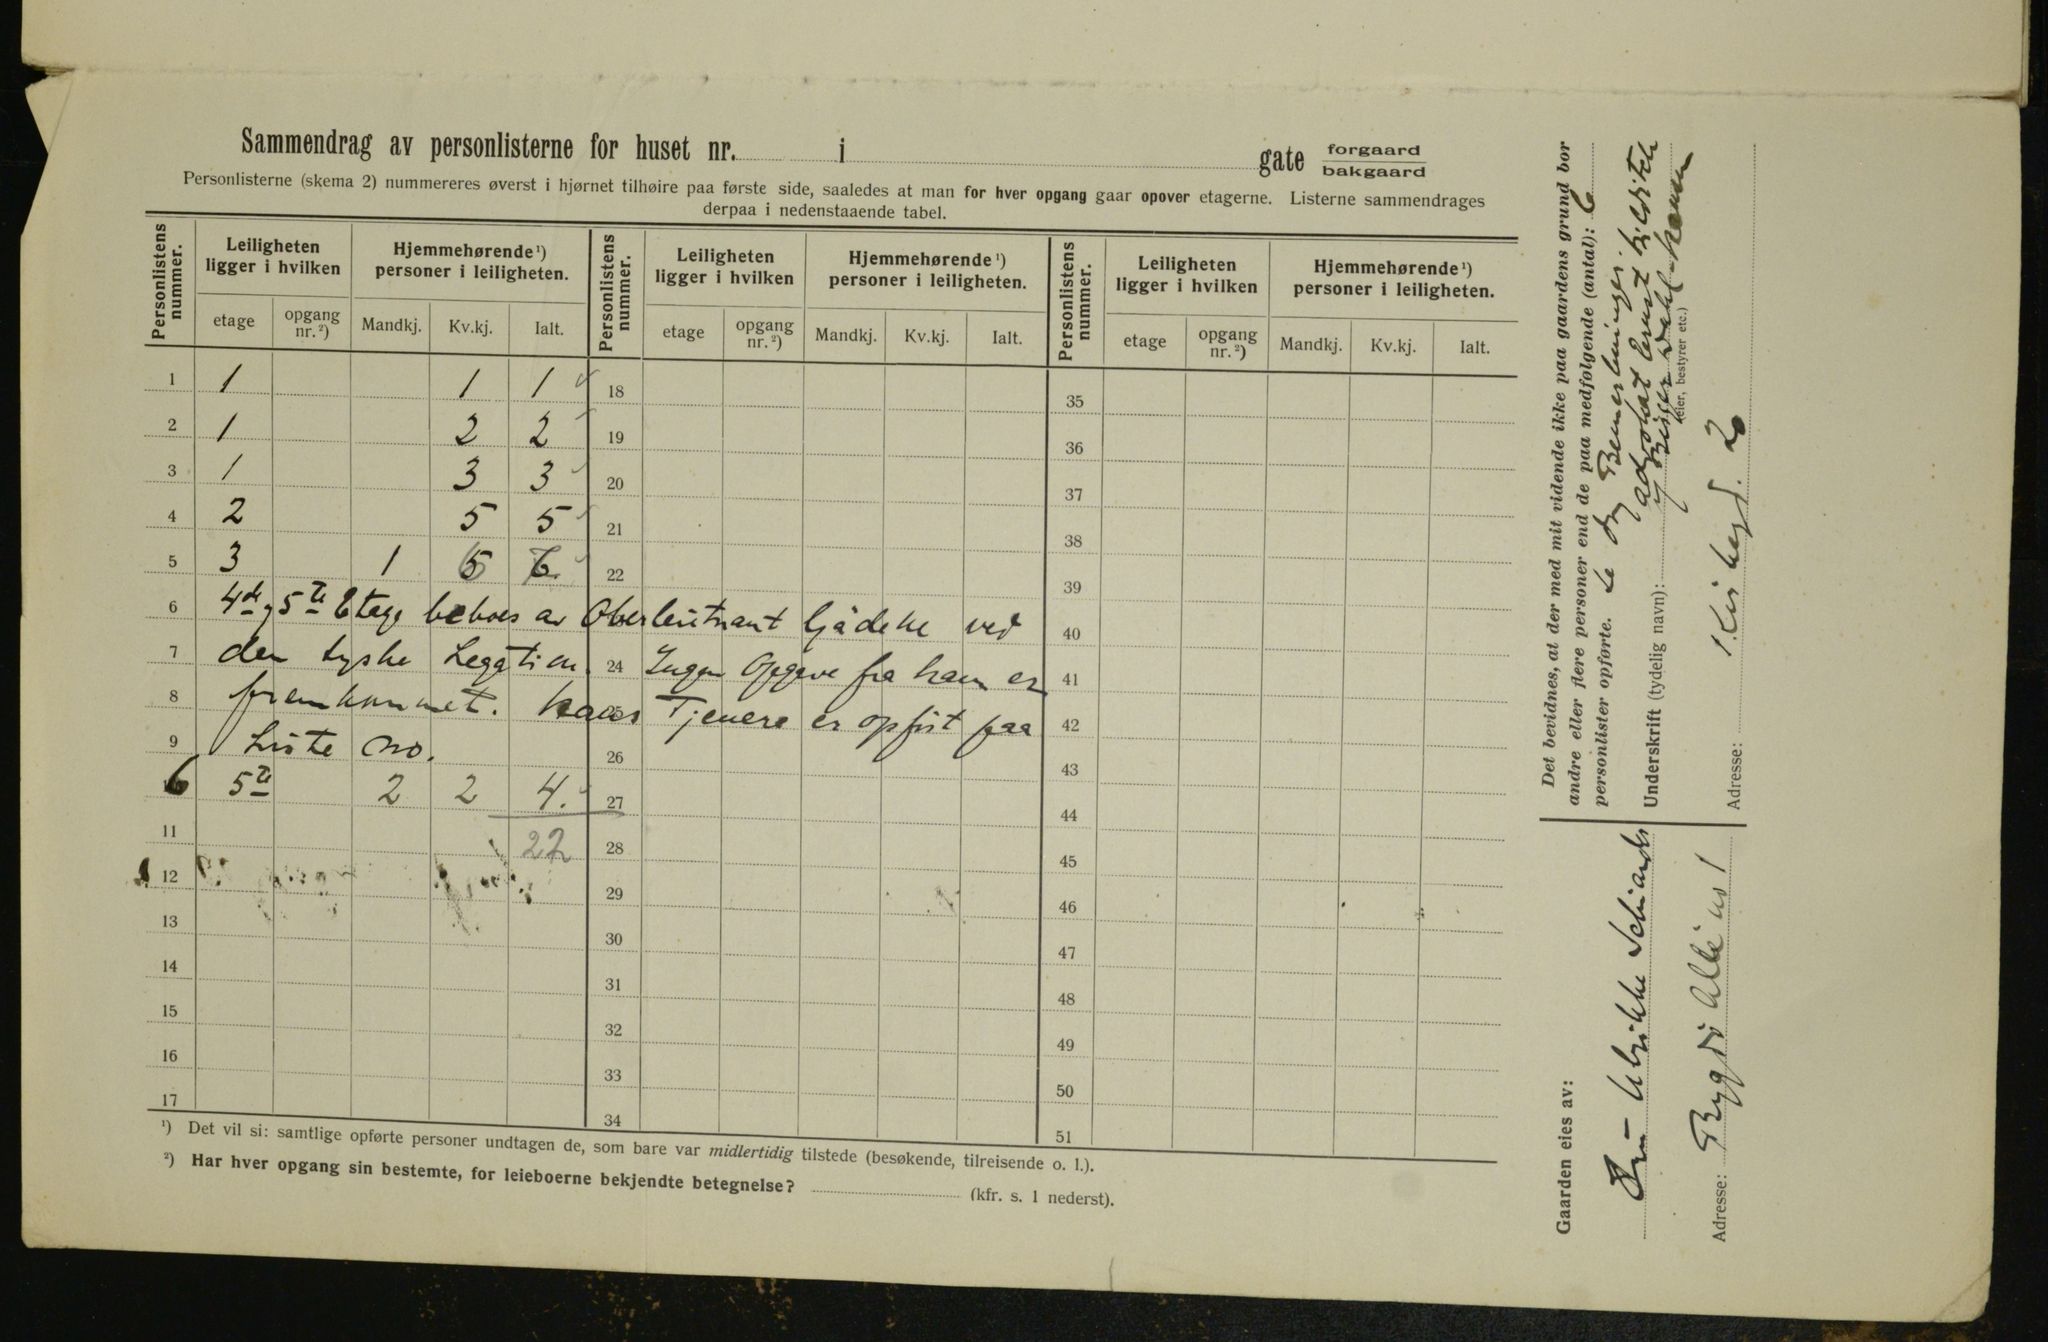 Sammendrag av personlisterne for huset nr. i gate forgaard bakgaard
Personlisterne (skema 2) nummereres øverst i hjørnet tilhøire paa første side, saaledes at man for hver opgang gaar opover etagerne. Listerne sammendrages
derpaa i nedenstaaende tabel.
Personlistens nummer. Leiligheten ligger i hvilken Hjemmehørende ¹) personer i leiligheten. Personlistens nummer. Leiligheten ligger i hvilken Hjemmehørende ¹) personer i leiligheten. Personlistens nummer. Leiligheten ligger i hvilken Hjemmehørende ¹) personer i leiligheten.
etage opgang nr. ²) Mandkj. Kv.kj. Ialt. etage opgang nr. ²) Mandkj. Kv.kj. Ialt. etage opgang nr. ²) Mandkj. Kv.kj. Ialt.
1 1 1 1 18 35
2 1 2 2 19 36
3 1 3 3 20 37
4 2 5 5 21 38
5 3 1 6 7 22 39
6 4de og 5te Etage beboes av Oberleutnant Gädeke ved 40
7 den tyske Legation. 24 Ingen Opgave fra ham er 41
8 fremkommet. Hans Tjenere er opført paa 42
9 Liste no. 26 43
6 5te 2 2 4. 27 44
11 22 28 45
12 29 46
13 30 47
14 31 48
15 32 49
16 33 50
17 34 51
¹) Det vil si: samtlige opførte personer undtagen de, som bare var midlertidig tilstede (besøkende, tilreisende o. l.).
²) Har hver opgang sin bestemte, for leieboerne bekjendte betegnelse? (kfr. s. 1 nederst).
Det bevidnes, at der med mit vidende ikke paa gaardens grund bor
andre eller flere personer end de paa medfølgende (antal): 6
personlister opførte. Se dog Bemerkninger.
advokat Ernst
Underskrift (tydelig navn):
(eier, bestyrer etc.)
Adresse: 2
Gaarden eies av:
Fru Ulrikke
Adresse: Bygdø Allé no 1